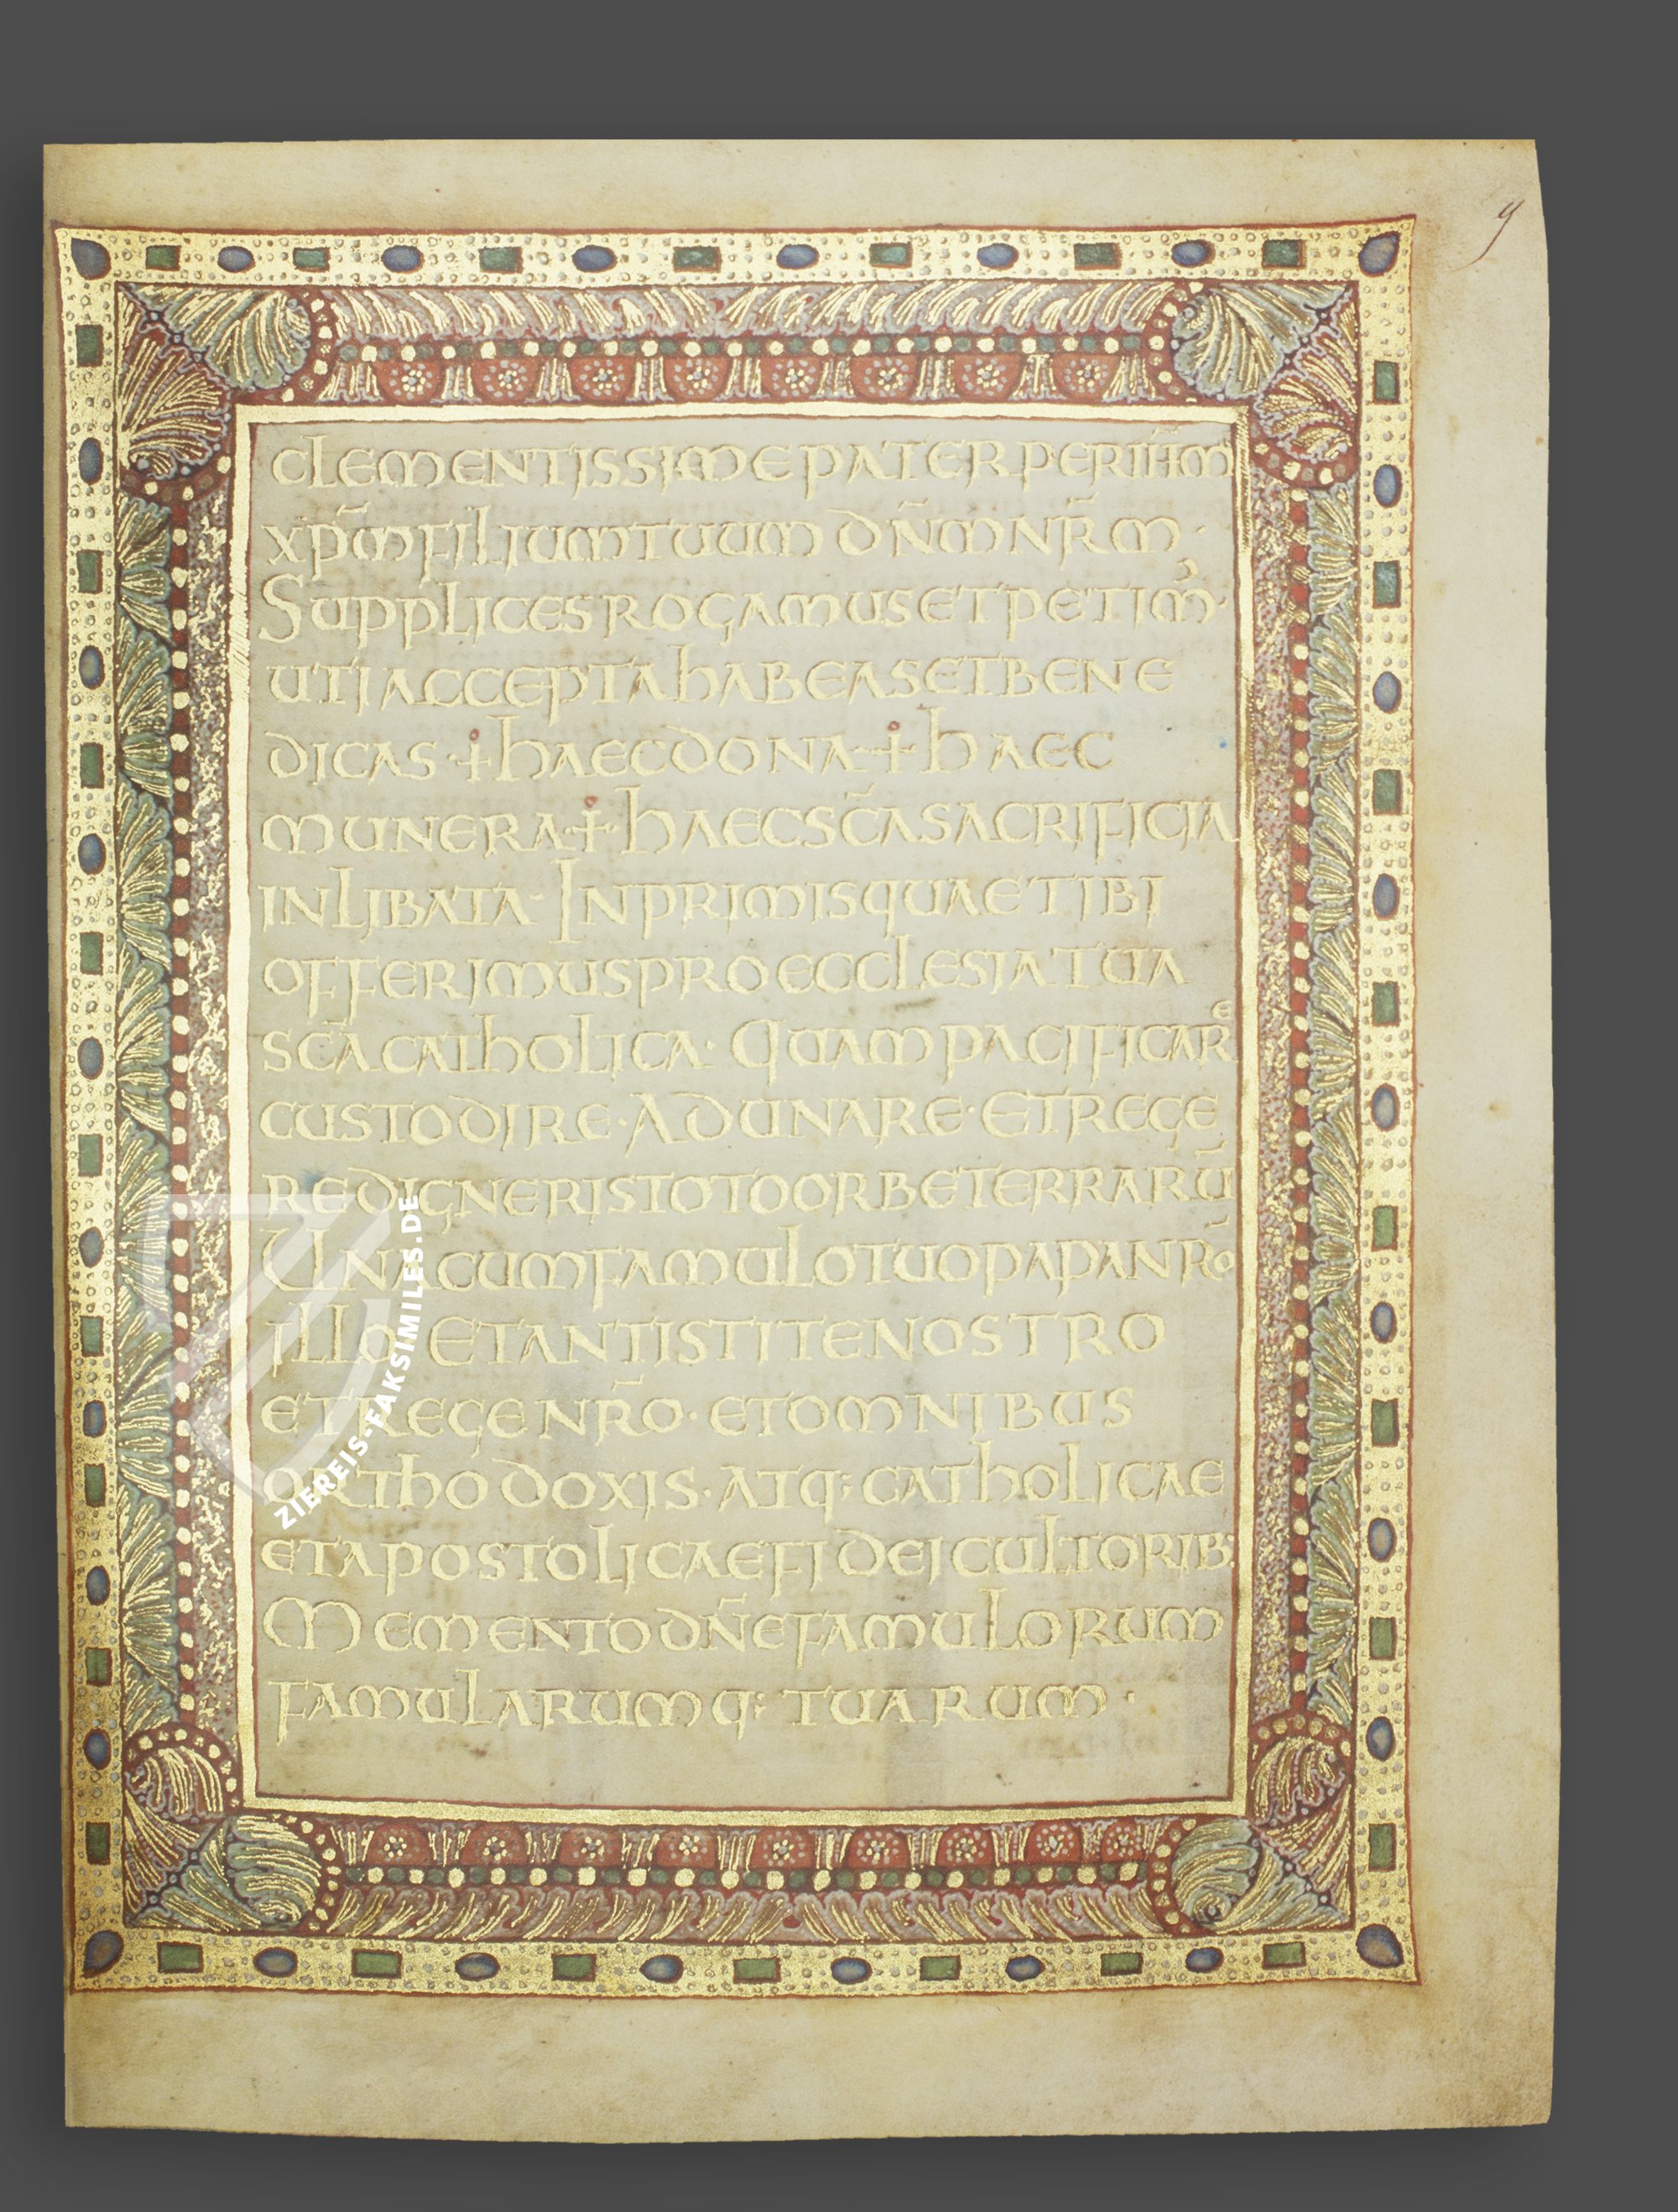 9
CLEMENTISSIME PATER PER IHM̄
XP̄M FILIUM TUUM DN̄M NR̄M ·
SUPPLICES ROGAMUS ET PETIM᾿·
UTI ACCEPTA HABEAS ET BENE
DICAS · + HAEC DONA · + HAEC
MUNERA · + HAEC SC̄A SACRIFICIA
INLIBATA · IN PRIMIS QUAE TIBI
OFFERIMUS PRO ECCLESIA TUA
SC̄A CATHOLICA · QUAM PACIFICARE
CUSTODIRE · ADUNARE · ET REGE
RE DIGNERIS TOTO ORBE TERRARŪ
UNA CUM FAMULO TUO PAPA NR̄O
ILLO ET ANTISTITE NOSTRO
ET REGE NR̄O · ET OMNIBUS
ORTHODOXIS · ATQ; CATHOLICAE
ET APOSTOLICAE FIDEI CULTORIB;
MEMENTO DN̄E FAMULORUM
FAMULARUMQ; TUARUM ·
ZIEREIS-FAKSIMILES.DE